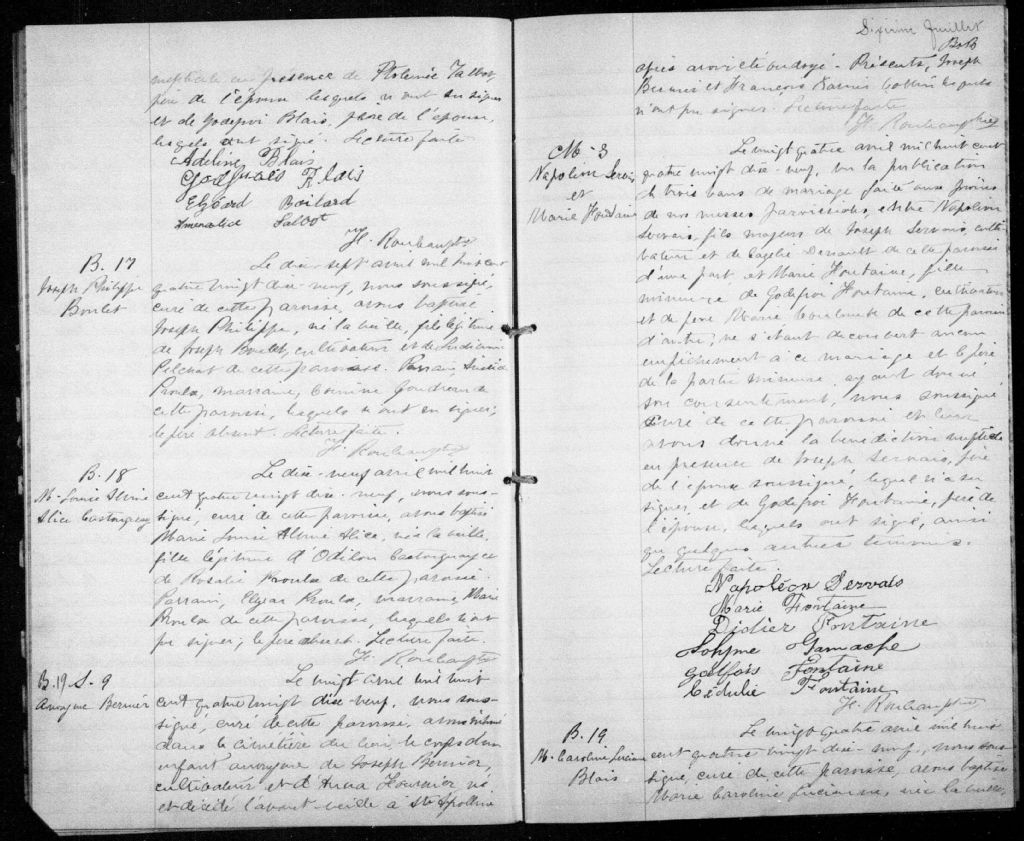 nuptiale en présence de Ptolémée Talbot,
père de l'épouse lesquels n'ont su signer
et de Godefroi Blais, père de l'époux,
lesquels ont signé. Lecture faite
Adeline Blais
Godfroais Blais
Elzéard Boilard
Talbot
B. 17
Joseph Philippe
Boulet
Le dix-sept avril mil huit cent
quatre vingt dix-neuf, nous soussigné,
curé de cette paroisse, avons baptisé
Joseph Philippe, né la veille, fils légitime
de Joseph Boulet, cultivateur et de
de cette paroisse. Parrain,
Proulx, marraine, Goudreau de
cette paroisse, lesquels n'ont su signer;
le père absent. Lecture faite.
B. 18
M. Louise Alvine
Alice Castonguay
Le dix-neuf avril mil huit
cent quatre vingt dix-neuf, nous sous-
signé, curé de cette paroisse, avons baptisé
Marie Louise Alvine Alice, née la veille,
fille légitime d'Odilon Castonguay et
de Rosalie Proulx de cette paroisse.
Parrain, Elzear Proulx, marraine, Marie
Proulx de cette paroisse, lesquels n'ont
pu signer; le père absent. Lecture faite.
B. 19 S. 9
Anonyme Bernier
Le vingt avril mil huit
cent quatre vingt dix-neuf, nous sous-
signé, curé de cette paroisse, avons inhumé
dans le cimetière du lieu, le corps d'un
enfant anonyme de Joseph Bernier,
cultivateur et d'Anna Fournier, né
et décédé l'avant-veille à Ste Apolline
Sixième Juillet
après avoir été ondoyé. Présents, Joseph
Bernier et François Xavier lesquels
n'ont pu signer. Lecture faite
M-3
Napoléon Servais
et
Marie Fontaine
Le vingt quatre avril mil huit cent
quatre vingt dix-neuf, vu la publication
de trois bans de mariage faite aux prônes
de nos messes paroissiales, entre Napoléon
Servais, fils majeur de Joseph Servais, culti-
vateur et de de cette paroisse
d'une part, et Marie Fontaine, fille
mineure de Godefroi Fontaine, cultivateur
et de feue Marie de cette paroisse
d'autre; ne s'étant découvert aucun
empêchement à ce mariage et le père
de la partie mineure ayant donné
son consentement, nous soussigné
Curé de cette paroisse et leur
avons donné la bénédiction nuptiale
en présence de Joseph Servais, père
de l'époux soussigné, lequel n'a su
signer, et de Godefroi Fontaine, père de
l'épouse, lesquels ont signé, ainsi
que quelques autres témoins.
Lecture faite.
Napoléon Servais
Marie Fontaine
Didier Fontaine
Gamache
Godfois Fontaine
Cédulie Fontaine
B. 19
M. Caroline Lucienne
Blais
Le vingt-quatre avril mil huit
cent quatre vingt dix-neuf, nous sous-
signé, curé de cette paroisse, avons baptisé
Marie Caroline Lucienne, née la veille,